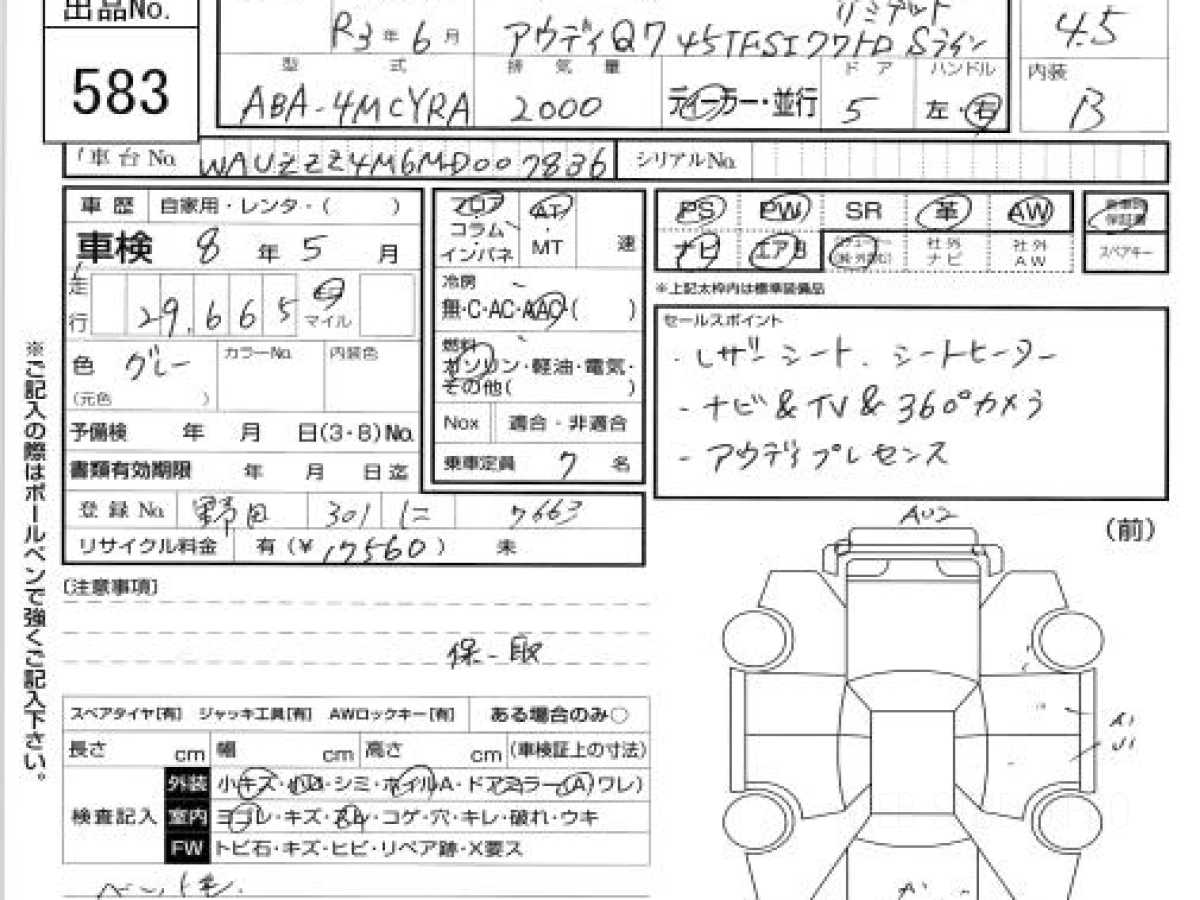 出品No.
583
R3年6月
リミテッド
アウディQ7 45TFSIクワトロ Sライン
4.5
型式 排気量 ドア ハンドル
ABA-4MCYRA 2000 ディーラー・並行 5 左・右
内装
B
車台No. WAUZZZ4M6MD007836 シリアルNo.
車歴 自家用・レンタ・( )
車検 8年5月
走行 29,665 マイル
色 グレー カラーNo. 内装色
(元色 )
予備検 年 月 日(3・8)No.
書類有効期限 年 月 日迄
登録No. 野田 301 に 7663
リサイクル料金 有(¥17560) 未
フロア
コラム
インパネ
AT
MT
速
冷房
無・C・AC・AAC・( )
燃料
ガソリン・軽油・電気・
その他( )
Nox 適合・非適合
乗車定員 7 名
PS PW SR 革 AW
保証書
ナビ エアB
社外ナビ
社外AW
スペアキー
※上記太枠内は標準装備品
セールスポイント
・レザーシート、シートヒーター
- ナビ&TV&360°カメラ
- アウディプレセンス
※ご記入の際はボールペンで強くご記入下さい。
〔注意事項〕
保-取
スペアタイヤ[有] ジャッキ工具[有] AWロックキー[有] ある場合のみ○
長さ cm 幅 cm 高さ cm (車検証上の寸法)
検査記入
外装 小キズ・小凹・シミ・ホイルA・ドアミラー(A)ワレ)
室内 ヨゴレ・キズ・スレ・コゲ・穴・キレ・破れ・ウキ
FW トビ石・キズ・ヒビ・リペア跡・X要ス
ペット毛.
AU2
(前)
A1
U1